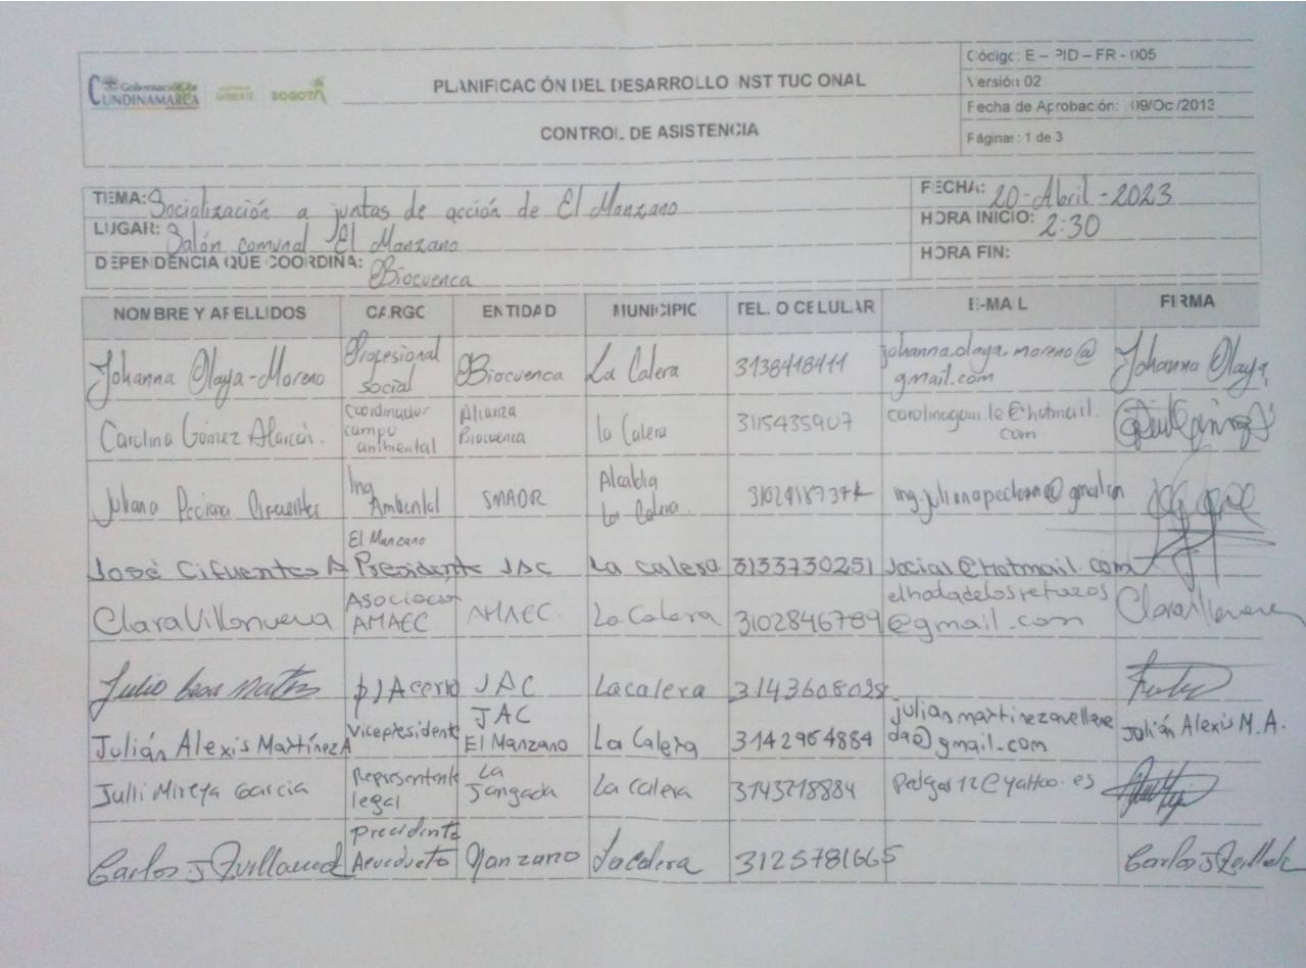 Gobernación de
CUNDINAMARCA
AMBIENTE BOGOTÁ
PLANIFICACIÓN DEL DESARROLLO INSTITUCIONAL
CONTROL DE ASISTENCIA
Código: E – PID – FR - 005
Versión 02
Fecha de Aprobación: 09/Oc/2013
Páginas: 1 de 3
TEMA: Socialización a juntas de acción de El Manzano
LUGAR: Salón comunal El Manzano
DEPENDENCIA QUE COORDINA: Biocuenca
FECHA: 20-Abril-2023
HORA INICIO: 2:30
HORA FIN:
NOMBRE Y APELLIDOS CARGO ENTIDAD MUNICIPIO TEL. O CELULAR E-MAIL FIRMA
Johanna Olaya-Moreno Profesional social Biocuenca La Calera 3138418411 johanna.olaya.moreno@gmail.com Johanna Olaya
Carolina Gómez Alarcón. Coordinador campo ambiental Alianza Biocuenca la Calera 3115435907 carolinagom.le@hotmail.com
Ing Ambiental SMADR Alcaldia La Calera
José Cifuentes A El Manzano Presidente JAC La calera 3133730251 Jocial@hotmail.com
Clara Villanueva AMACC AMACC. La Calera 3102846789 elhadadelosretazos@gmail.com Clara Villanueva
Julio JAC La calera 3143608028
Julián Alexis Martínez A Vicepresidente JAC El Manzano La Calera 3142964884 julianmartinezavellaneda@gmail.com Julián Alexis M.A.
Julli Mireya Garcia Representante legal La Jangada La Calera 3143218884 Pedgar12@yahoo.es
Carlos J Avellaned Precidente Acueducto Manzano La calera 3125781665 Carlos J